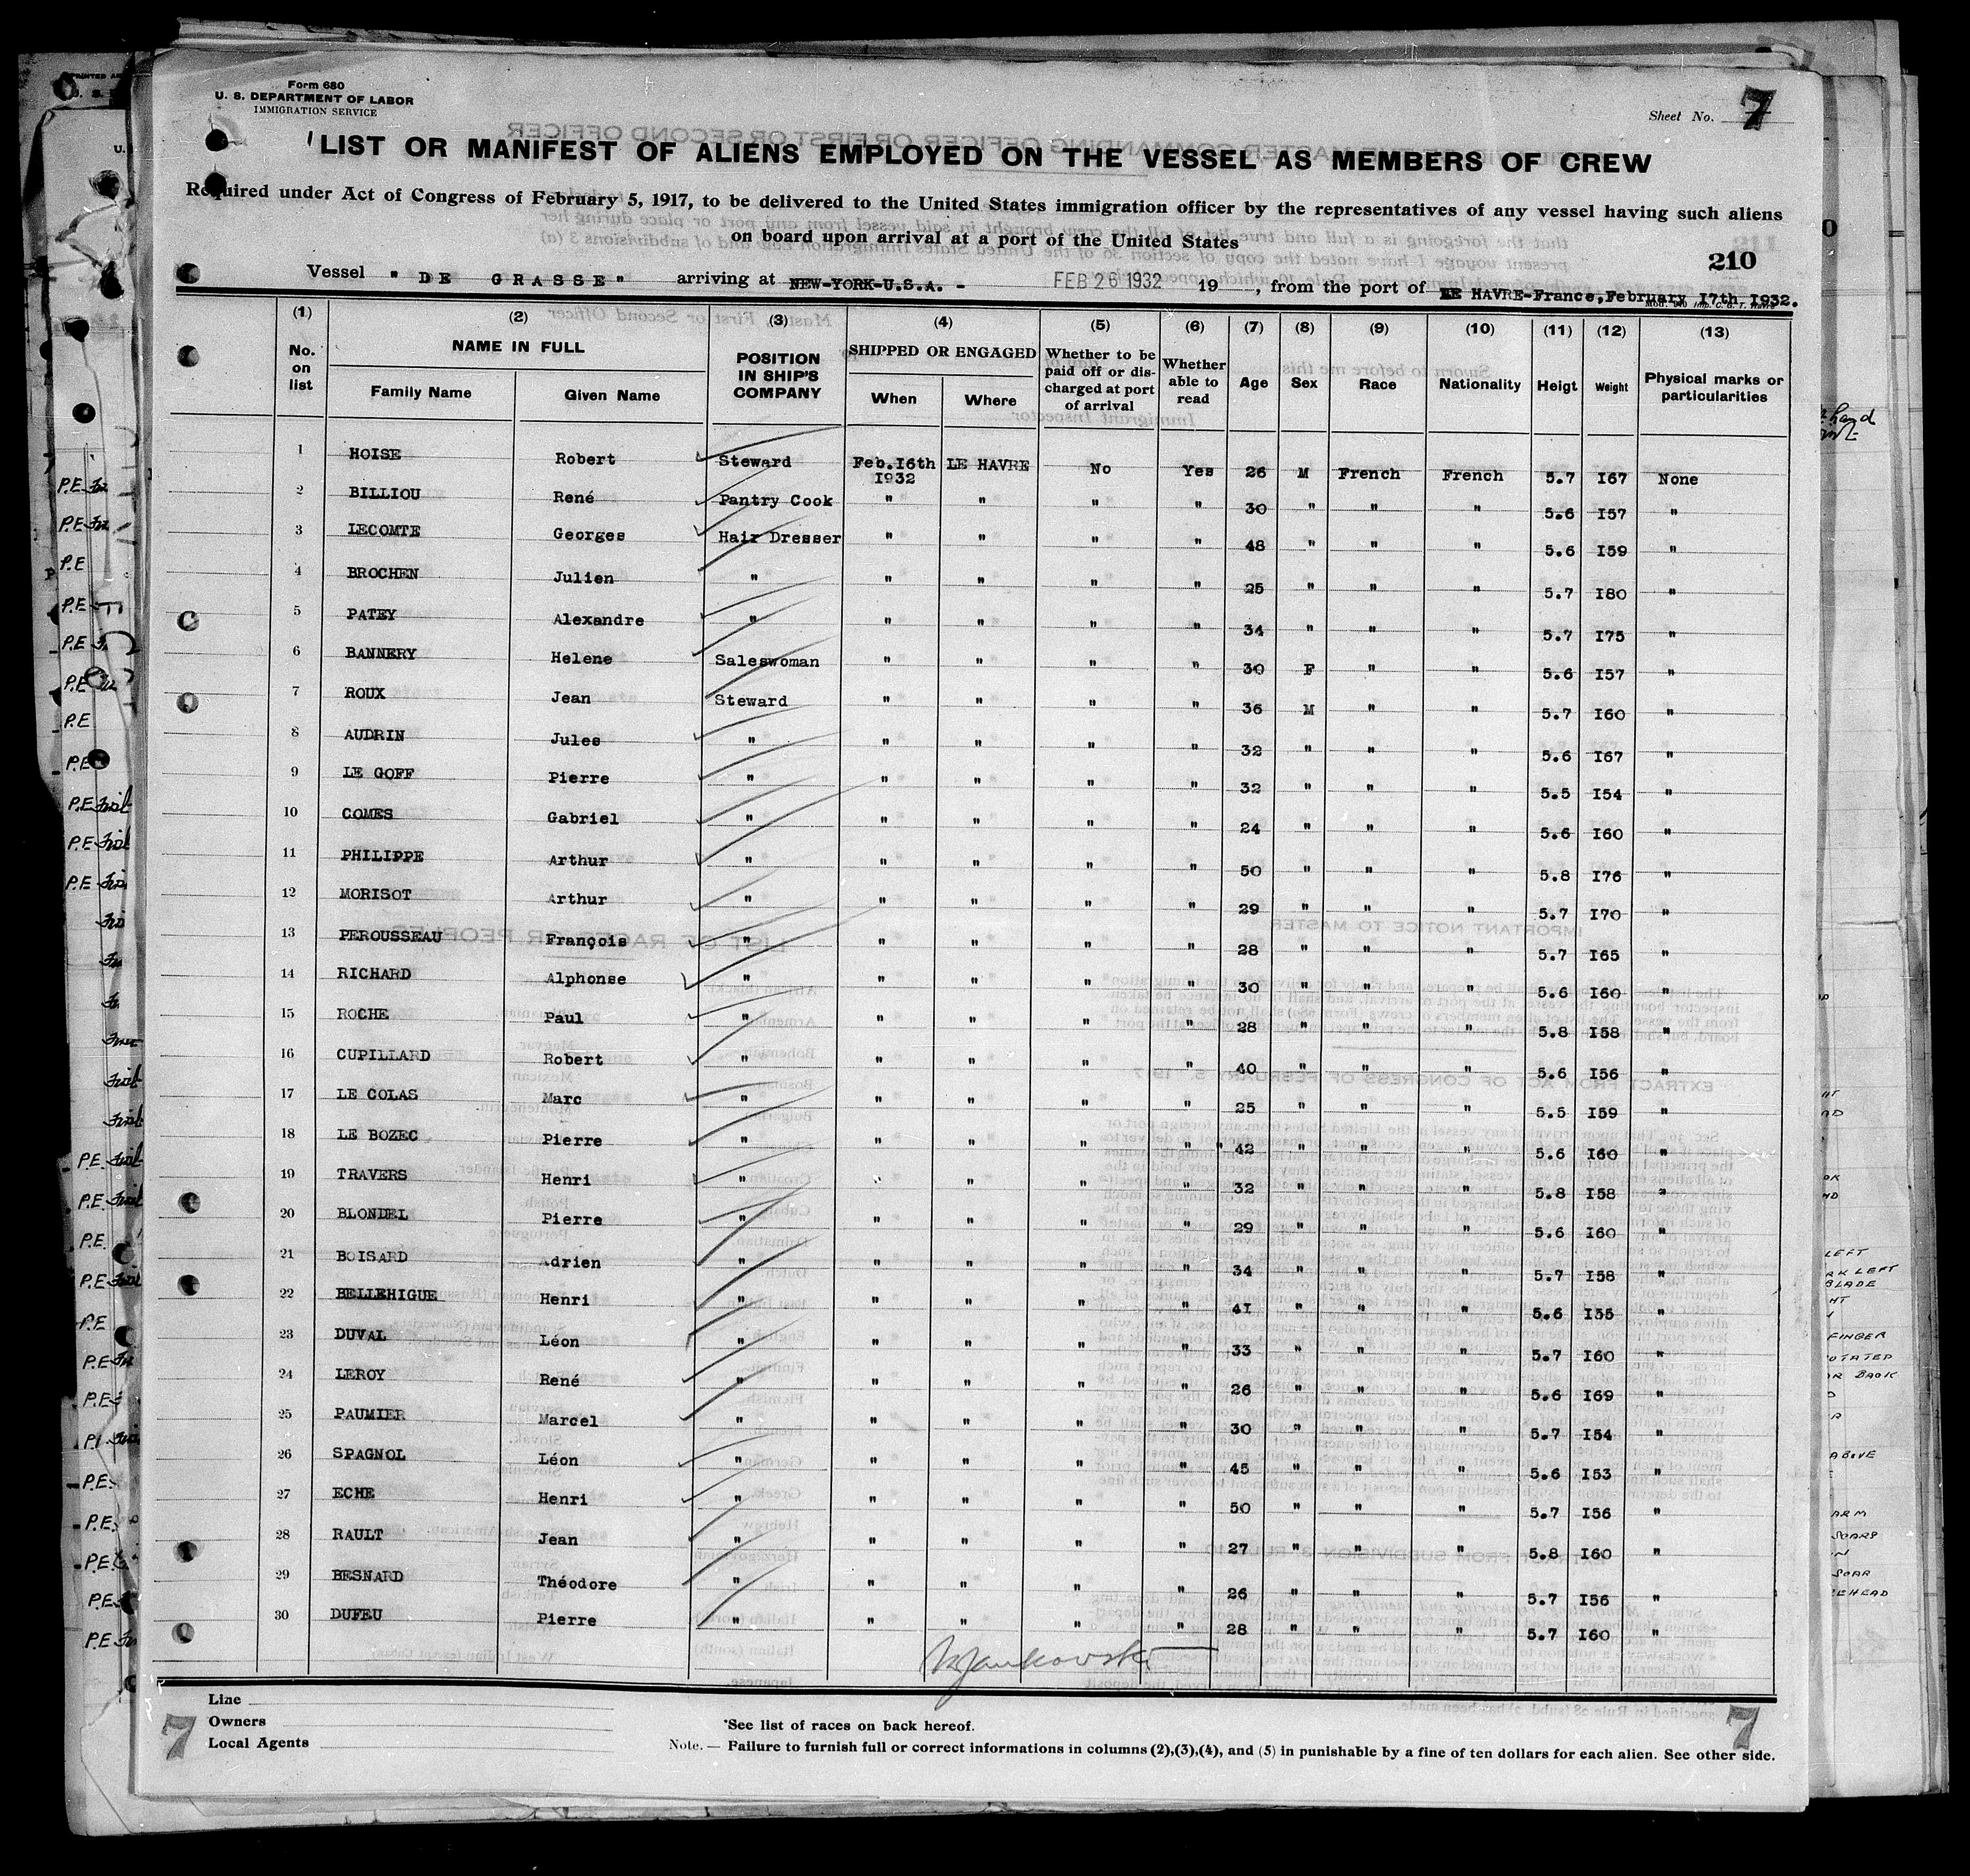 Form 680
U. S. DEPARTMENT OF LABOR
IMMIGRATION SERVICE
Sheet No. 7
LIST OR MANIFEST OF ALIENS EMPLOYED ON THE VESSEL AS MEMBERS OF CREW
Required under Act of Congress of February 5, 1917, to be delivered to the United States immigration officer by the representatives of any vessel having such aliens
on board upon arrival at a port of the United States
210
Vessel "DE GRASSE" arriving at NEW-YORK-U.S.A. - FEB 26 1932 19 , from the port of LE HAVRE-France, February 17th 1932.
(1) (2) (3) (4) (5) (6) (7) (8) (9) (10) (11) (12) (13)
No. on list NAME IN FULL Family Name Given Name POSITION IN SHIP'S COMPANY SHIPPED OR ENGAGED When Where Whether to be paid off or discharged at port of arrival Whether able to read Age Sex Race Nationality Heigt Weight Physical marks or particularities
1 HOISE Robert Steward Feb.16th 1932 LE HAVRE No Yes 26 M French French 5.7 167 None
2 BILLIOU René Pantry Cook " " " " 30 " " " 5.6 157 "
3 LECOMTE Georges Hair Dresser " " " " 48 " " " 5.6 159 "
4 BROCHEN Julien " " " " " 25 " " " 5.7 180 "
5 PATEY Alexandre " " " " " 34 " " " 5.7 175 "
6 BANNERY Helene Saleswoman " " " " 30 F " " 5.6 157 "
7 ROUX Jean Steward " " " " 36 M " " 5.7 160 "
8 AUDRIN Jules " " " " " 32 " " " 5.6 167 "
9 LE GOFF Pierre " " " " " 32 " " " 5.5 154 "
10 COMES Gabriel " " " " " 24 " " " 5.6 160 "
11 PHILIPPE Arthur " " " " " 50 " " " 5.8 176 "
12 MORISOT Arthur " " " " " 29 " " " 5.7 170 "
13 PEROUSSEAU François " " " " " 28 " " " 5.7 165 "
14 RICHARD Alphonse " " " " " 30 " " " 5.6 160 "
15 ROCHE Paul " " " " " 28 " " " 5.8 158 "
16 CUPILLARD Robert " " " " " 40 " " " 5.6 156 "
17 LE COLAS Marc " " " " " 25 " " " 5.5 159 "
18 LE BOZEC Pierre " " " " " 42 " " " 5.6 160 "
19 TRAVERS Henri " " " " " 32 " " " 5.8 158 "
20 BLONDEL Pierre " " " " " 29 " " " 5.6 160 "
21 BOISARD Adrien " " " " " 34 " " " 5.7 158 "
22 BELLEHIGUE Henri " " " " " 41 " " " 5.6 155 "
23 DUVAL Léon " " " " " 33 " " " 5.7 160 "
24 LEROY René " " " " " 26 " " " 5.6 169 "
25 PAUMIER Marcel " " " " " 30 " " " 5.7 154 "
26 SPAGNOL Léon " " " " " 45 " " " 5.6 153 "
27 ECHE Henri " " " " " 50 " " " 5.7 156 "
28 RAULT Jean " " " " " 27 " " " 5.8 160 "
29 BESNARD Théodore " " " " " 26 " " " 5.7 156 "
30 DUFEU Pierre " " " " " 28 " " " 5.7 160 "
Line
Owners
Local Agents
7
7
*See list of races on back hereof.
Note. — Failure to furnish full or correct informations in columns (2),(3),(4), and (5) in punishable by a fine of ten dollars for each alien. See other side.